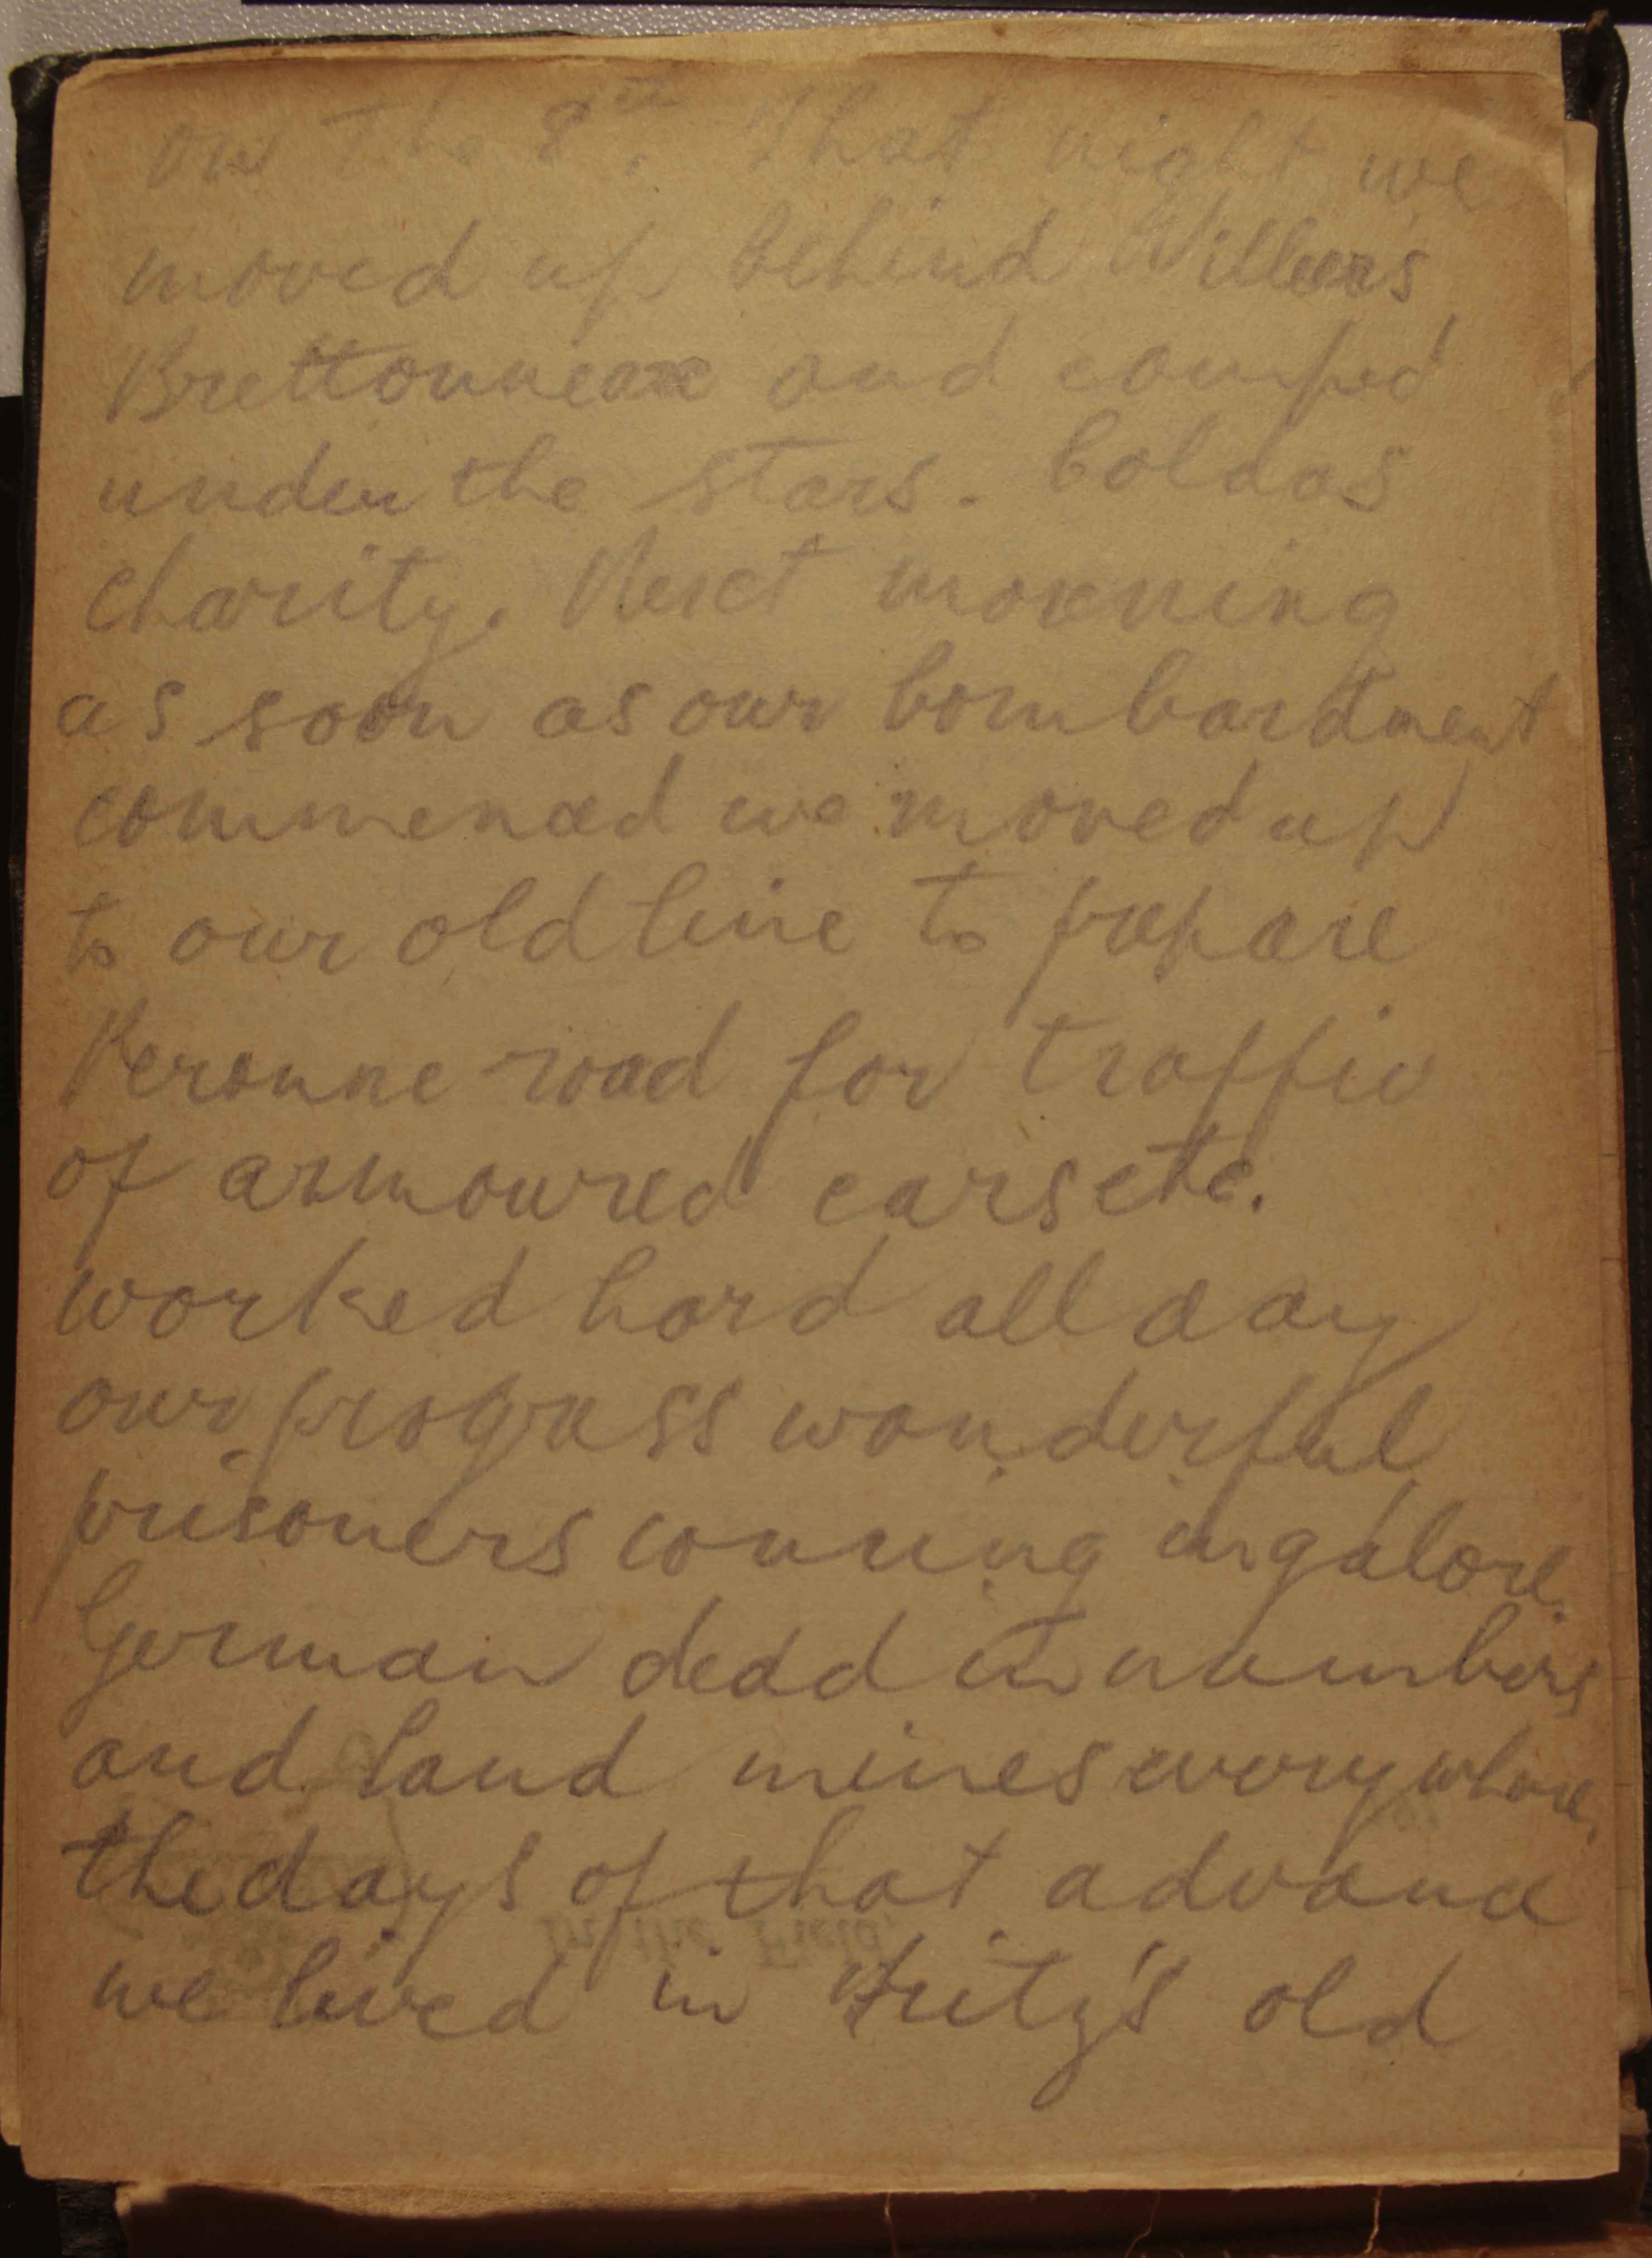 on the 8th. That night we
moved up behind Villers
Brettonneax and camped
under the stars. Cold as
charity. Next morning
as soon as our bombardment
commenced we moved up
to our old line to prepare
Peronne road for traffic
of armoured cars etc.
worked hard all day
our progress wonderful
prisoners coming in galore.
German dead in numbers
and land mines everywhere.
the days of that advance
we lived in Fritz's old
In the Field.